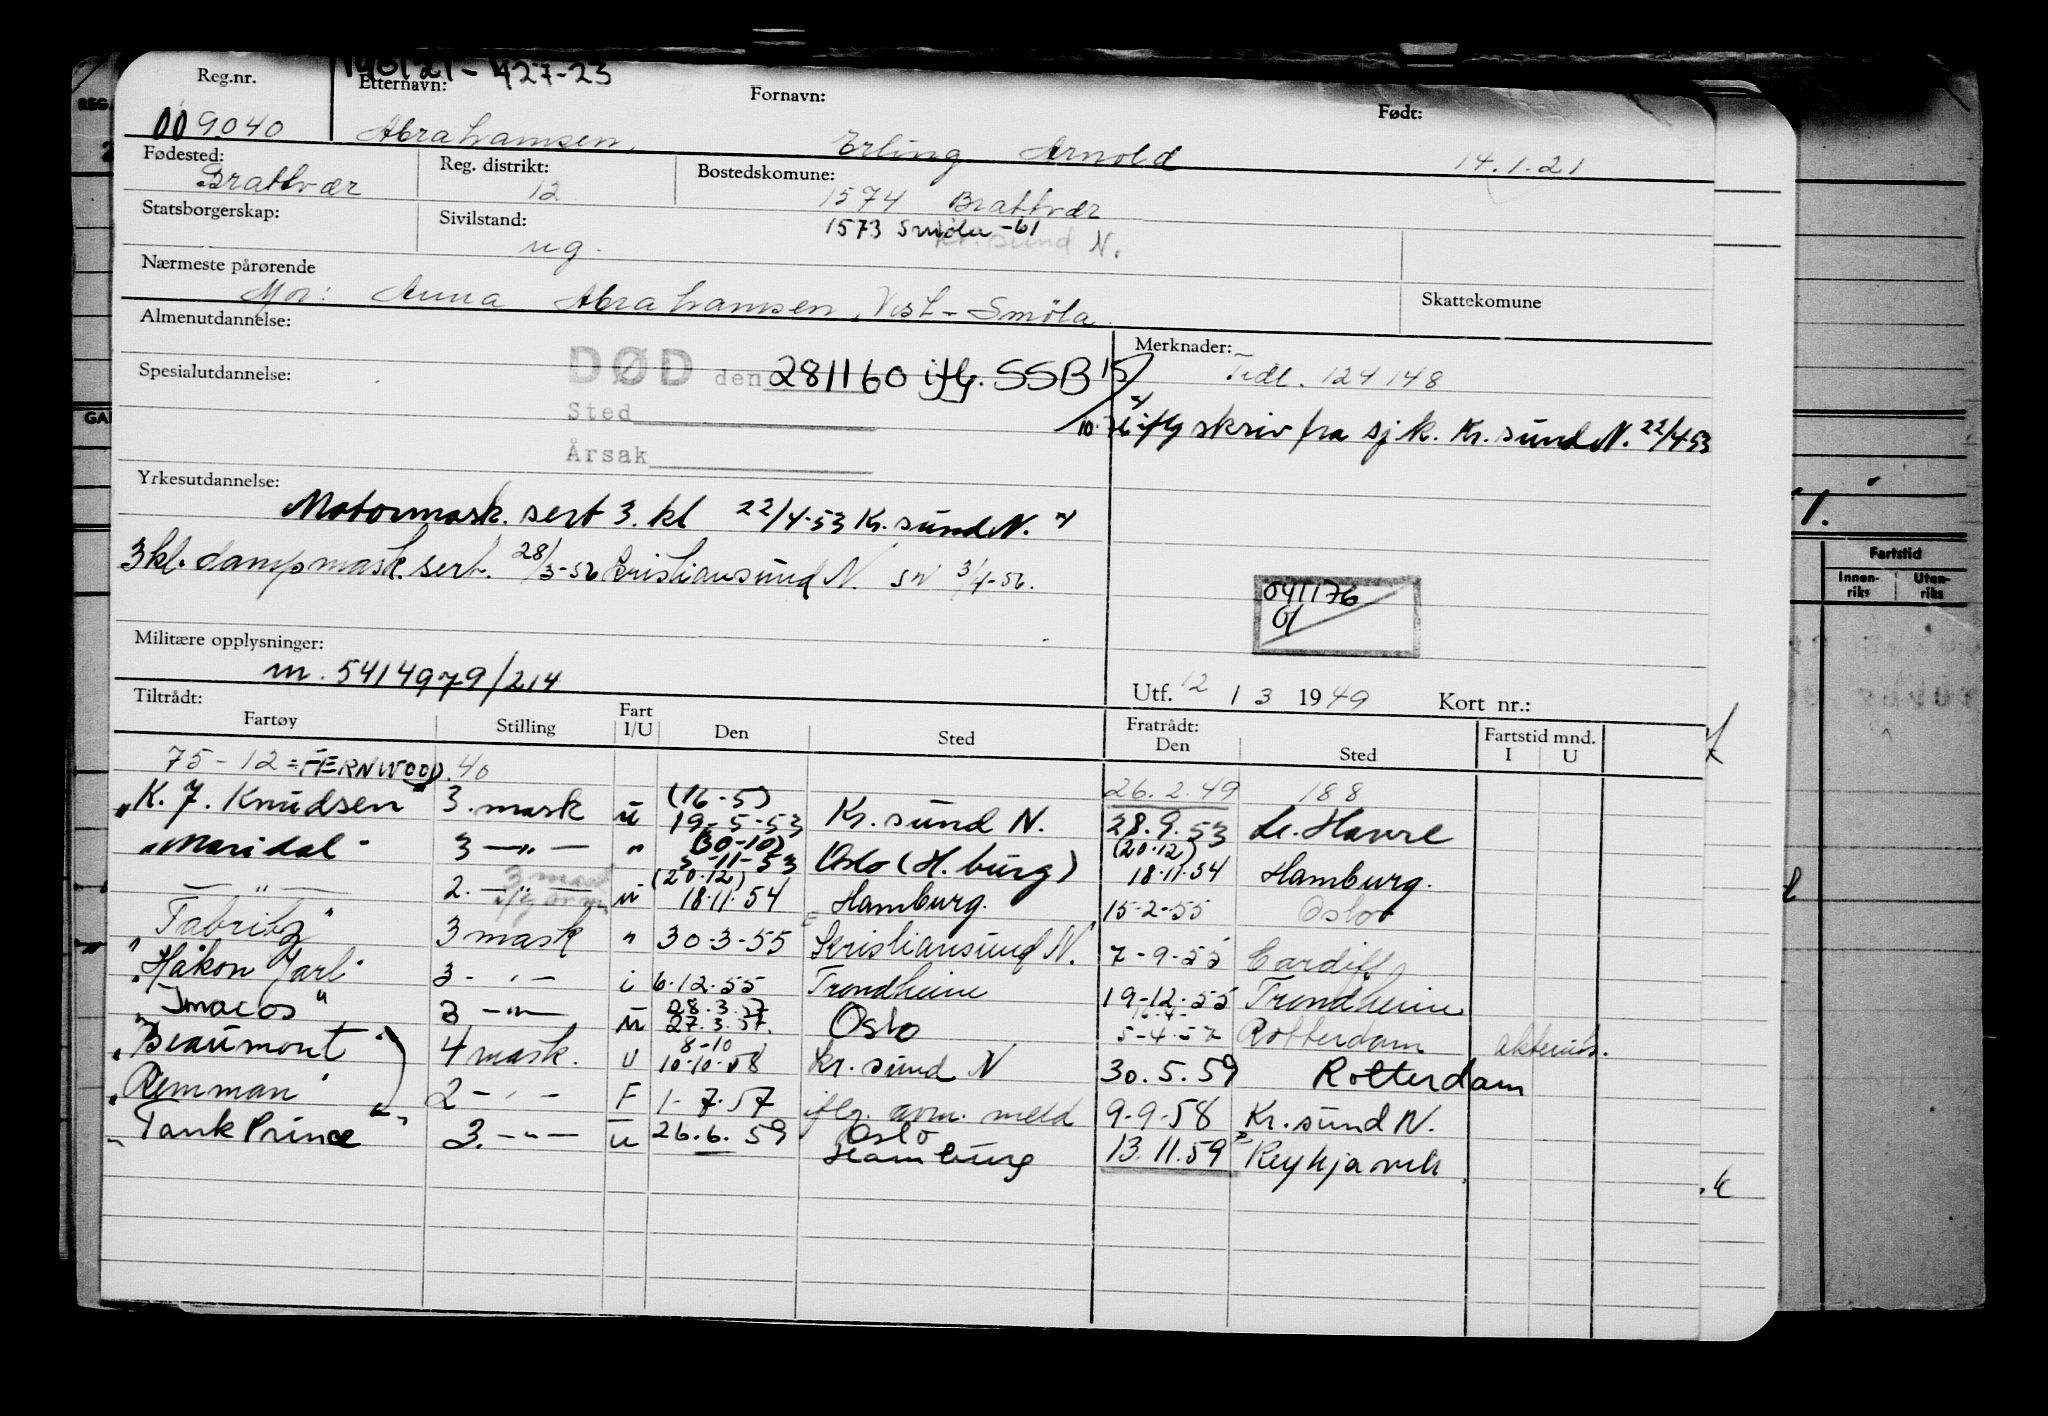 140121-427-23
Reg.nr. Etternavn: Fornavn: Født:
009040 Abrahamsen, Erling Arnold 14.1.21
Fødested: Reg. distrikt: Bostedskomune:
Brattvær 12 1574 Brattvær
Statsborgerskap: Sivilstand: 1573 Smøla -61
ug. Kr.sund N.
Nærmeste pårørende Skattekomune
Mor: Anna Abrahamsen, Vest-Smöla
Almenutdannelse: Merknader:
DØD den 281160 iflg. SSB 15/10.76 Tidl. 124148
Spesialutdannelse:
Sted iflg skriv fra sj.k. Kr.sund N. 22/4-53
Årsak
Yrkesutdannelse:
Motormask. sert 3. kl 22/4-53 Kr.sund N.
3 kl. dampmask. sert. 28/3-56 Kristiansund N. SN 3/4-56.
041176
Militære opplysninger:
m. 5414979/214
Tiltrådt: Utf. 12 / 3 1949 Kort nr.:
Fartøy Stilling Fart I/U Den Sted Fratrådt: Den Sted Fartstid mnd. I U
75-12 = FERNWOOD. 40 26.2.49 188
"K. J. Knudsen" 3. mask u (16-5) 19-5-53 Kr. sund N. 28.9.53 Le. Havre
"Maridal" 3 —"— " (30-10) 5-11-53 Oslo (H.burg) (20.12) 18.11.54 Hamburg.
—"— 2. —"— u (20.12) 18.11.54 Hamburg. 15-2-55 Oslo
"Fabritz" 3 mask " 30-3-55 Kristiansund N. 7-9-55 Cardiff
"Håkon Jarl" 3 -"- i 6.12.55 Trondheim 19-12-55 Trondheim
"Imacos" 3 —"— u 28.3.57 27.3.57. Oslo 5-4-57 Rotterdam
"Beaumont" 4 mask. U 8-10 10-10-58 Kr. sund N 30.5.59 Rotterdam
"Remman" 2 -"- F 1-7.57 iflg. avm. meld 9-9-58 Kr. sund N.
"Tank Prince" 3. -"- u 26.6.59 Oslo Hamburg 13.11.59 Reykjavik
Fartstid
Innen-riks Uten-riks